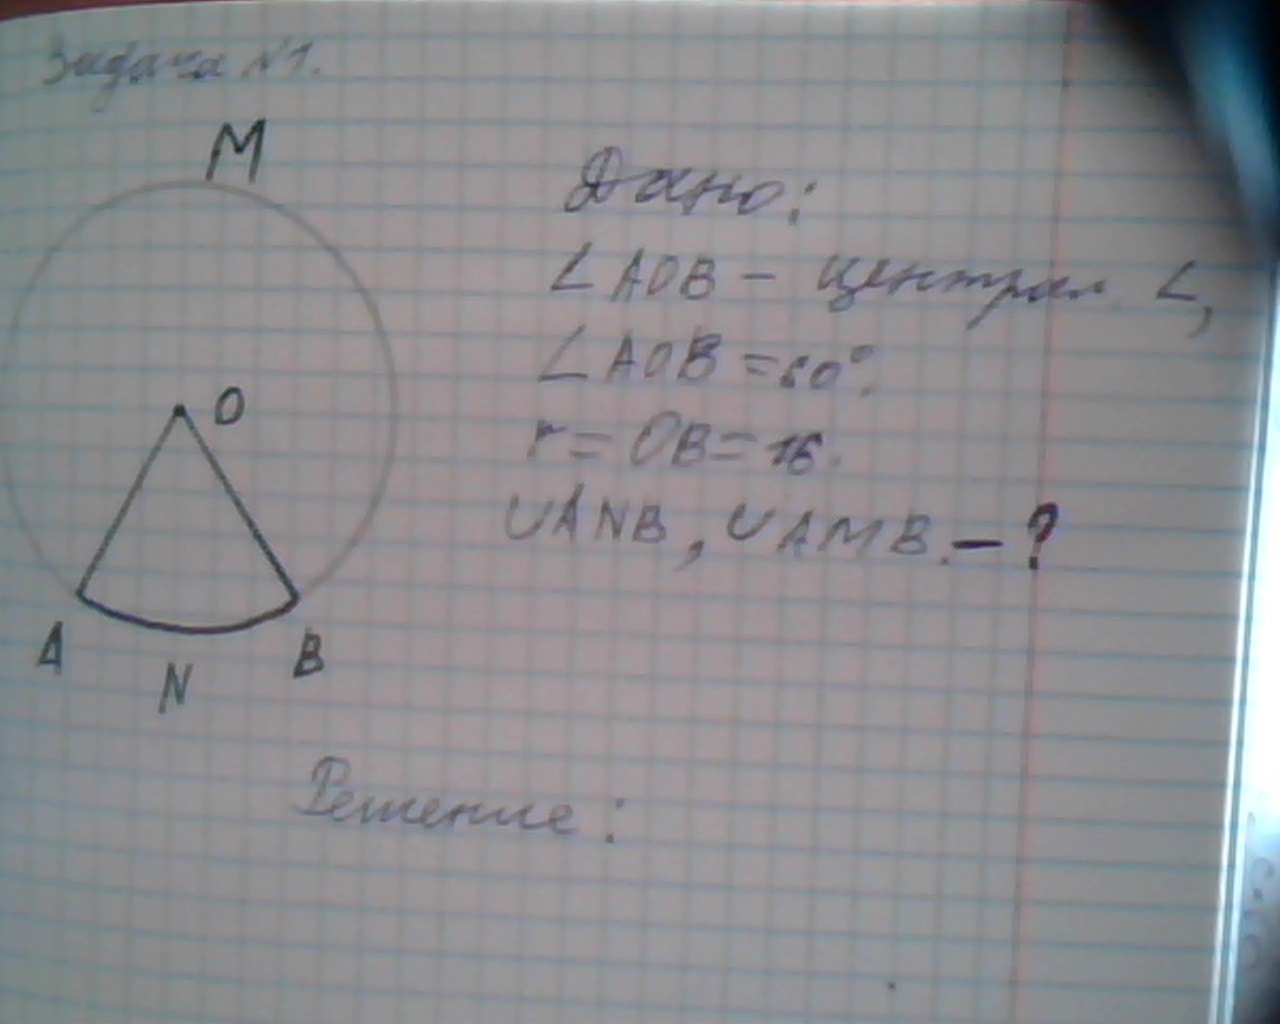 Задача №1.
M
Дано:
∠AOB - централ ∠,
∠AOB = 60°.
O
r = OB = 16.
∪ANB, ∪AMB. - ?
A
B
N
Решение: